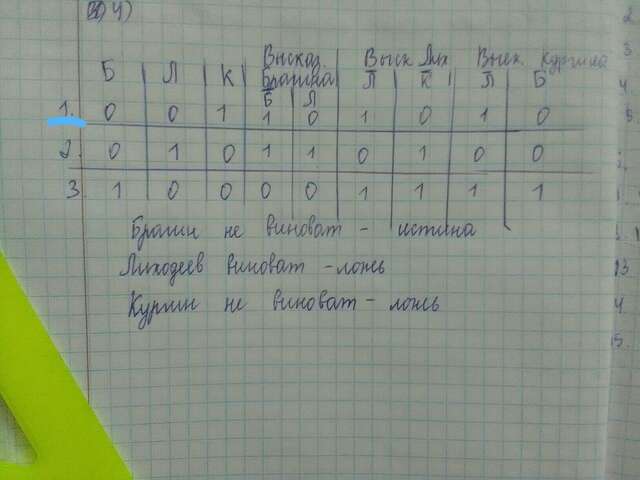 4)
Б Л К Выказ. Брагина Выск Лих Выск. Кургина
Б̅ Л Л̅ К̅ Л̅ Б
1. 0 0 1 1 0 1 0 1 0
2. 0 1 0 1 1 0 1 0 0
3. 1 0 0 0 0 1 1 1 1
Брагин не виноват - истина
Лиходеев виноват - ложь
Кургин не виноват - ложь
2
3.
4.
5.
13
4
15.